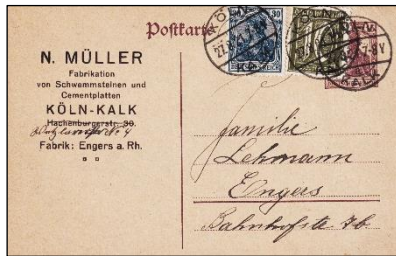 Postkarte
N. MÜLLER
Fabrikation
von Schwemmsteinen und
Cementplatten
KÖLN-KALK
Hachenburgerstr. 30.
Fabrik: Engers a. Rh.
30
KALK
Familie
Lehmann
Engers
Bahnhofstr 7b.